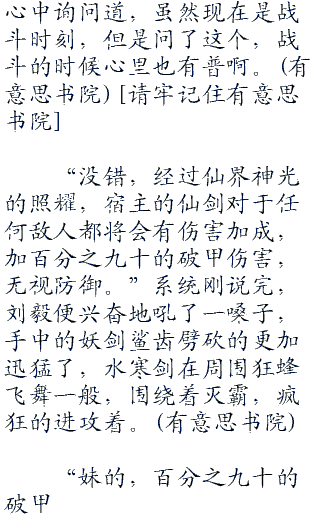 心中询问道，虽然现在是战
斗时刻，但是问了这个，战
斗的时候心里也有普啊。(有
意思书院) [请牢记住有意思
书院]
“没错，经过仙界神光
的照耀，宿主的仙剑对于任
何敌人都将会有伤害加成，
加百分之九十的破甲伤害，
无视防御。”系统刚说完，
刘毅便兴奋地吼了一嗓子，
手中的妖剑鲨齿劈砍的更加
迅猛了，水寒剑在周围狂蜂
飞舞一般，围绕着灭霸，疯
狂的进攻着。(有意思书院)
“妹的，百分之九十的
破甲